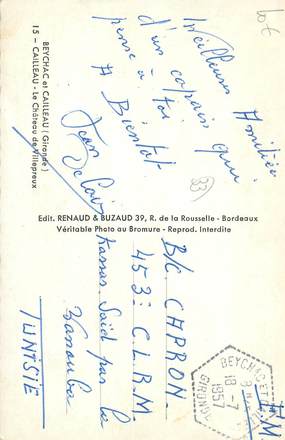 Meilleurs Amitiés
d'un copain qui
pense à toi
A Bientôt
Jean Claude
33
lot
BEYCHAC et CAILLEAU (Gironde)
15 - CAILLEAU - Le Château de Villepreux
Edit. RENAUD & BUZAUD 39, R. de la Rousselle - Bordeaux
Véritable Photo au Bromure - Reprod. Interdite
B/C CAPRON
453e C.L.R.M.
Kassar Saïd par la
Manouba
TUNISIE
F.M
BEYCHAC ET
18 - 7
1957
GIRONDE